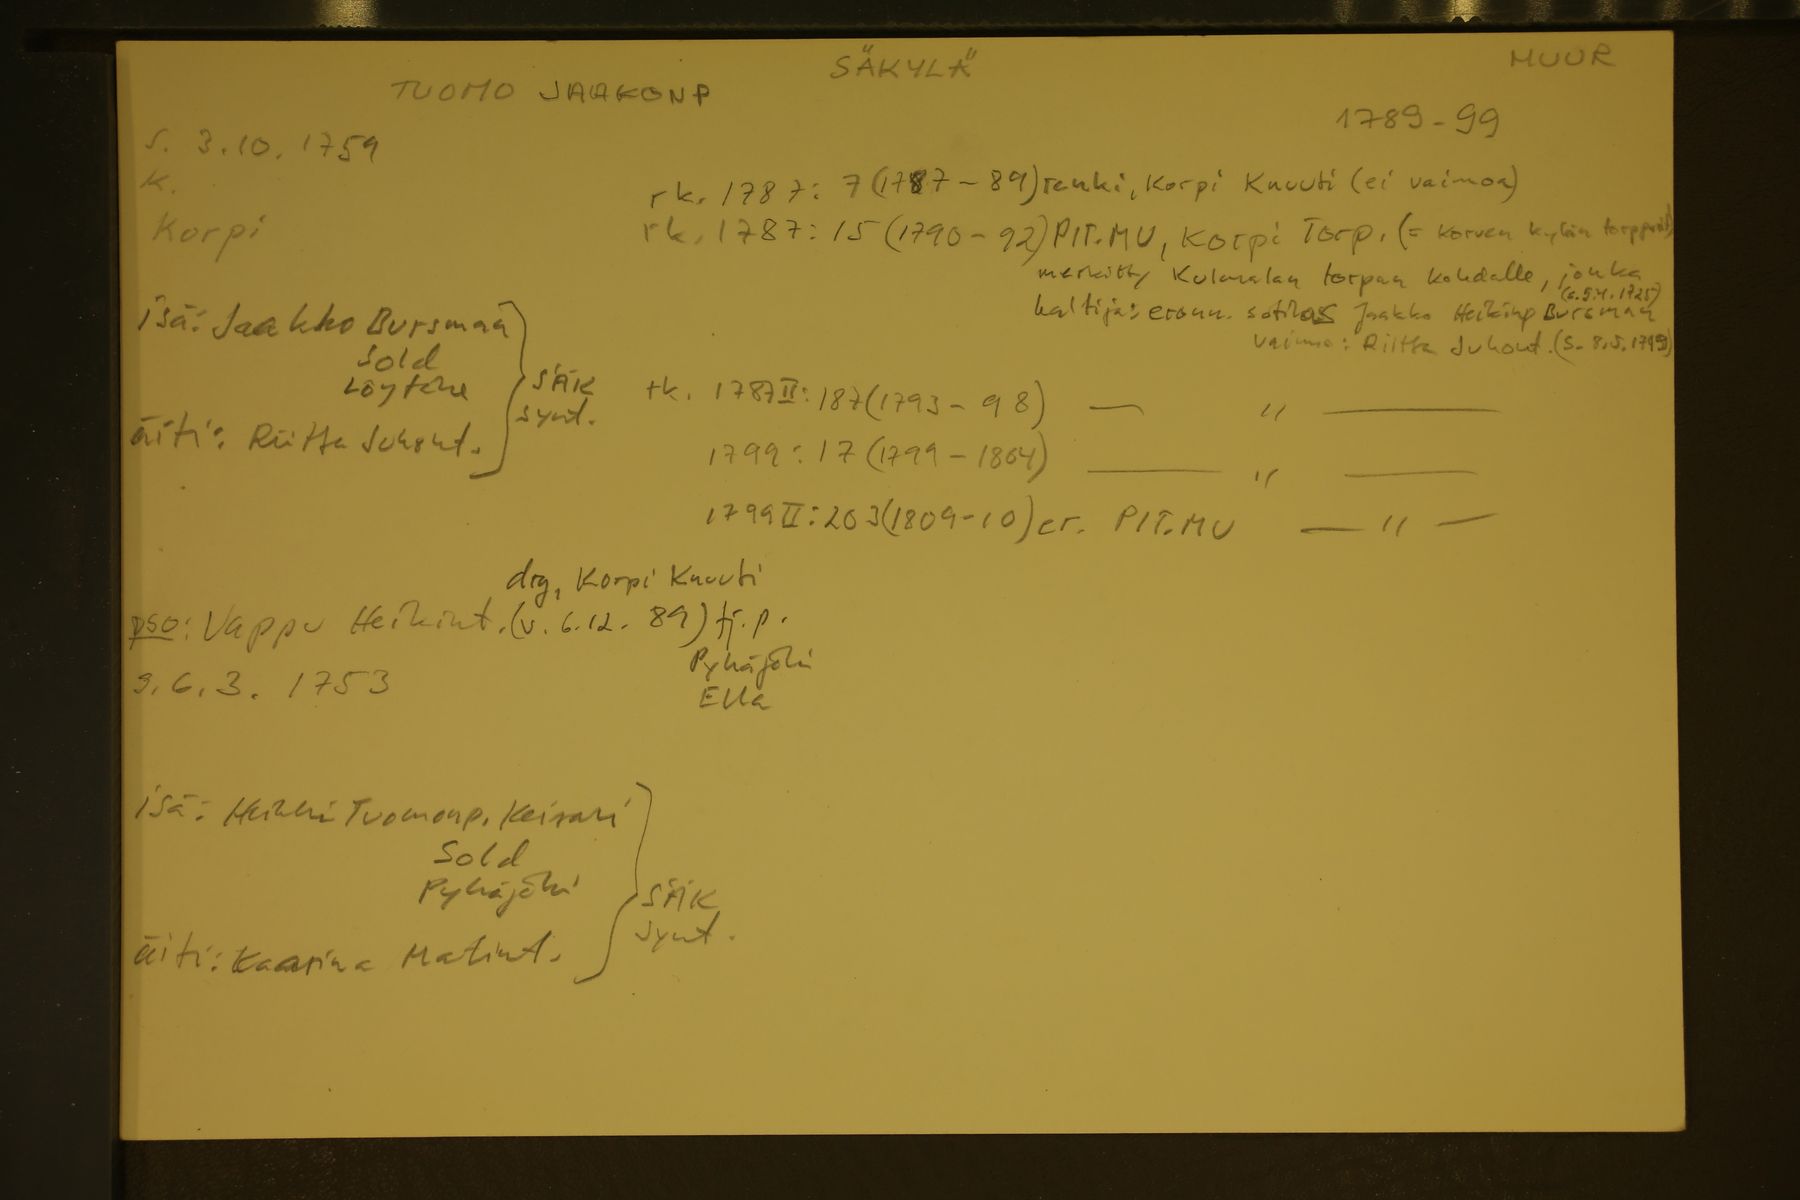 SÄKYLÄ
MUUR
TUOMO JAAKONP
1789-99
s. 3.10. 1759
k.
rk. 1787: 7 (1787-89) renki, Korpi Knuuti (ei vaimoa)
Korpi
rk. 1787: 15 (1790-92) PIT.MU, Korpi Torp. (= Korven kylän torpparit)
merkitty Kulmalan torpan kohdalle, jonka
haltija: eronn. sotilas Jaakko Heikinp Bursman
vaimo: Riitta Juhont.
isä: Jaakko Bursman
Sold
Löytäne
SÄK
synt.
äiti: Riitta Juhont.
rk. 1787 II: 187 (1793-98) — " —
1799: 17 (1799-1804) — " —
1799 II: 203 (1809-10) er. PIT.MU — " —
drg, Korpi Knuuti
pso: Vappu Heikint. (v. 6.12. 89) tj. p.
Pyhäjoki
Ella
s. 6.3. 1753
isä: Heikki Tuomonp. Keisari
Sold
Pyhäjoki
SÄK
synt.
äiti: Kaarina Matint.